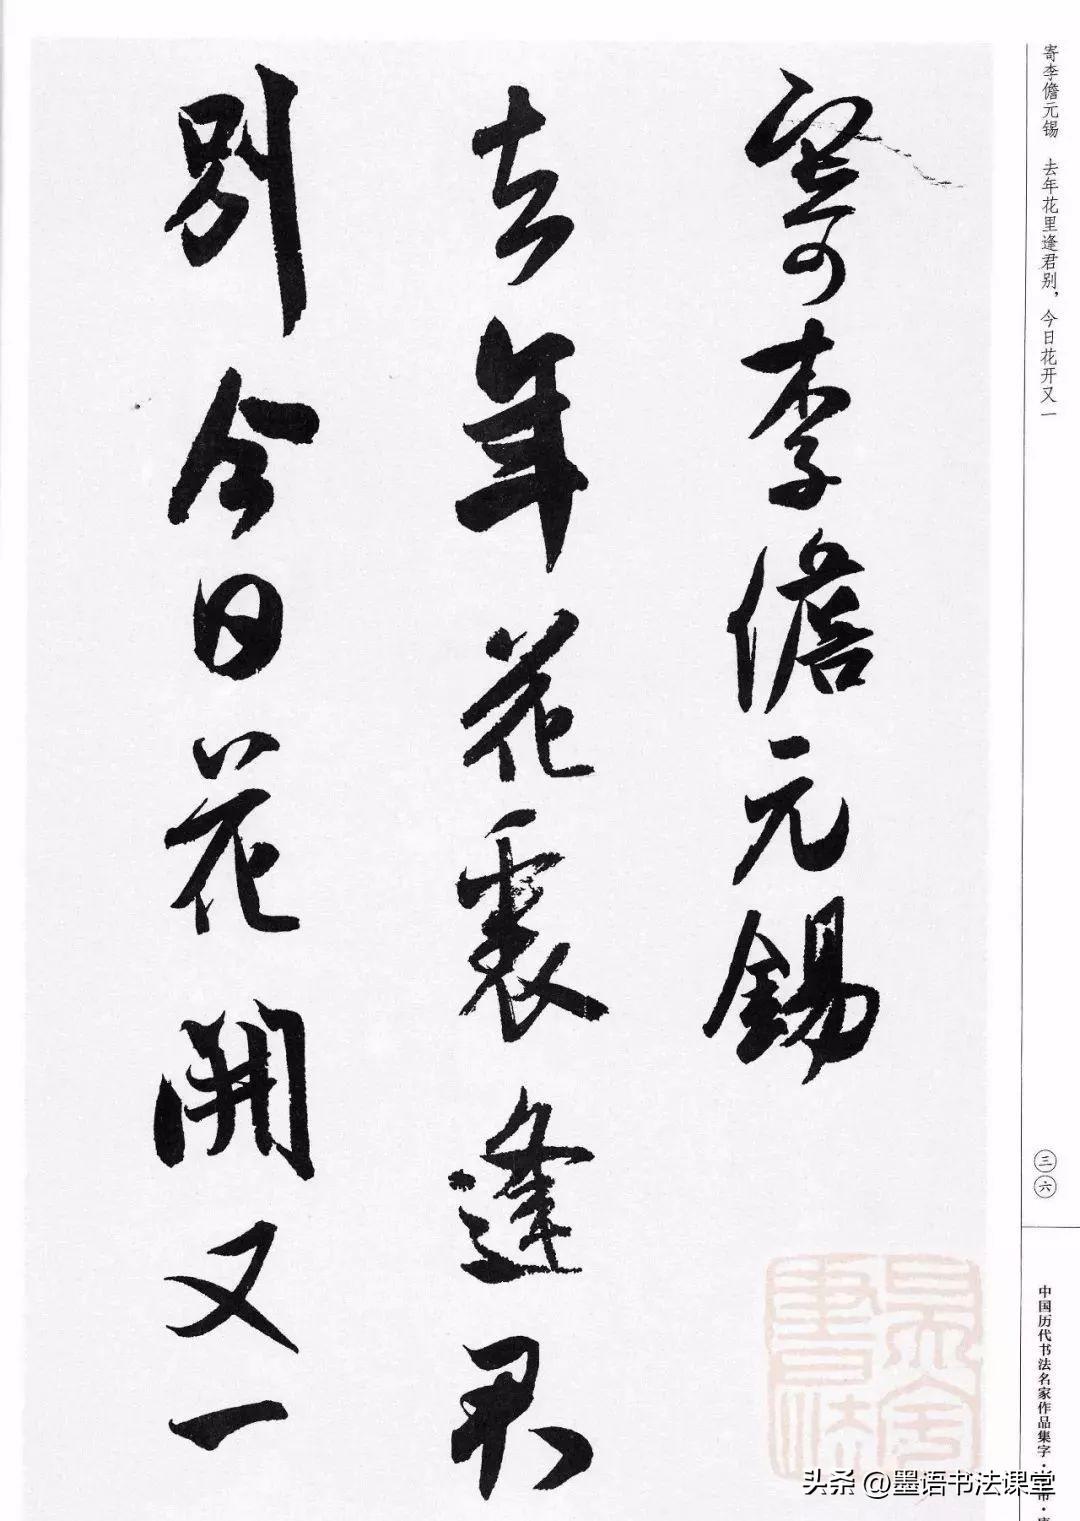 寄李儋元锡 去年花里逢君别，今日花开又一
寄李儋元錫
去年花裏逢君
別今日花開又一
三六
中国历代书法名家作品集字·
墨舍書法
头条 @墨语书法课堂